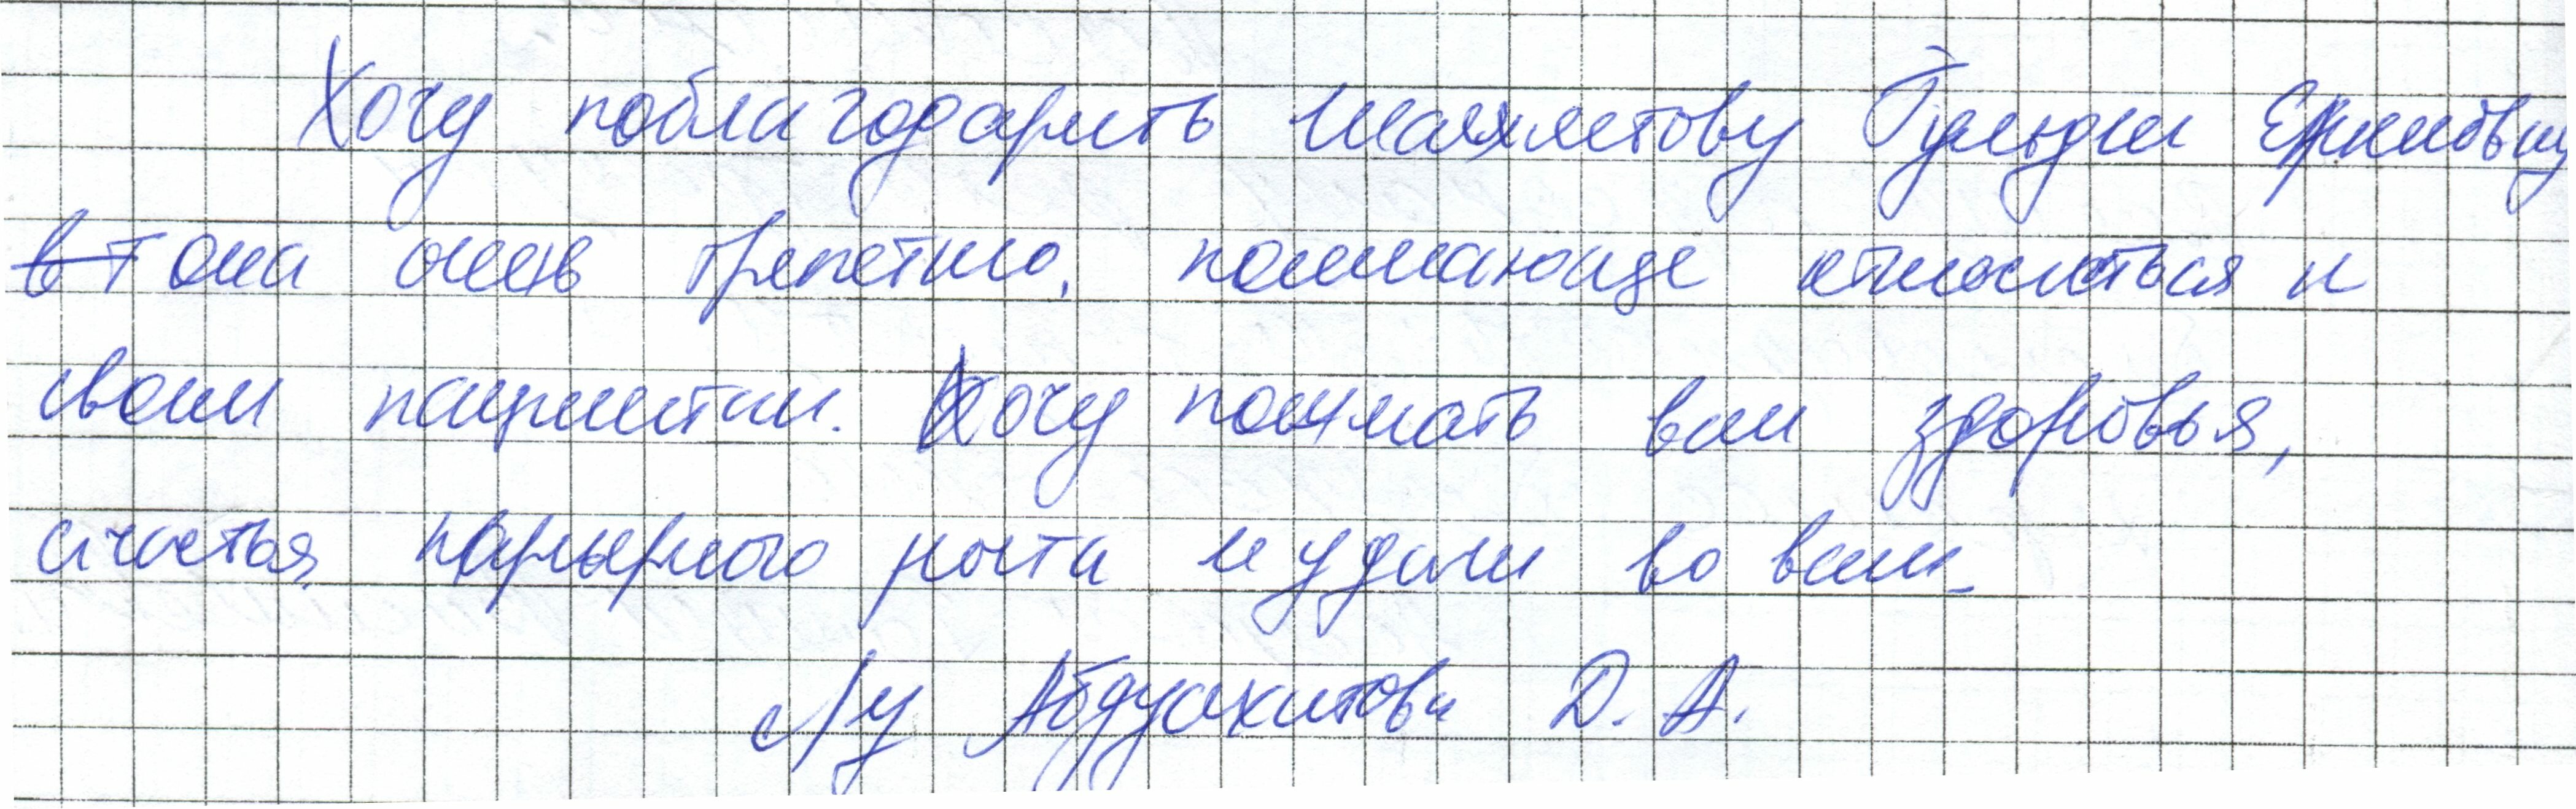 Хочу поблагодарить Шахметову Гульден Еркиновну
она очень трепетно, понимающе относиться к
своим пациентам. Хочу пожелать вам здоровья,
счастья карьерного роста и удачи во всем.
Абдуахитова Д. А.